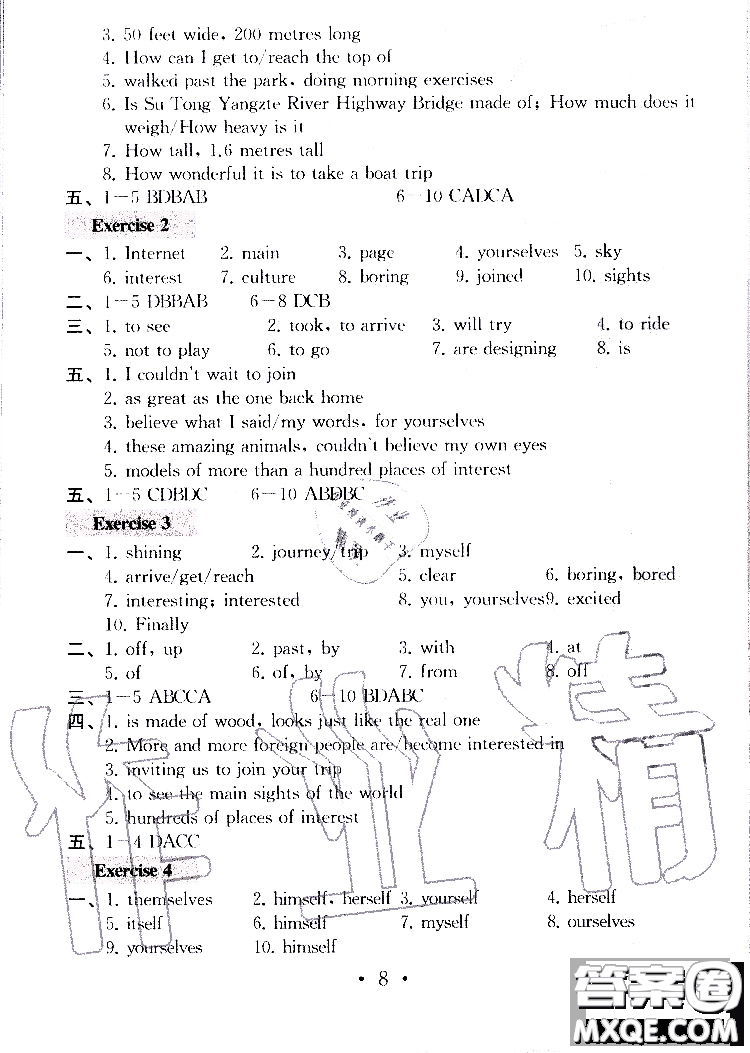 3. 50 feet wide, 200 metres long
4. How can I get to/reach the top of
5. walked past the park, doing morning exercises
6. Is Su Tong Yangzte River Highway Bridge made of; How much does it
weigh/How heavy is it
7. How tall, 1.6 metres tall
8. How wonderful it is to take a boat trip
五、1—5 BDBAB 6—10 CADCA
Exercise 2
一、1. Internet 2. main 3. page 4. yourselves 5. sky
6. interest 7. culture 8. boring 9. joined 10. sights
二、1—5 DBBAB 6—8 DCB
三、1. to see 2. took, to arrive 3. will try 4. to ride
5. not to play 6. to go 7. are designing 8. is
五、1. I couldn't wait to join
2. as great as the one back home
3. believe what I said/my words, for yourselves
4. these amazing animals, couldn't believe my own eyes
5. models of more than a hundred places of interest
五、1—5 CDBDC 6—10 ABDBC
Exercise 3
一、1. shining 2. journey/trip 3. myself
4. arrive/get/reach 5. clear 6. boring, bored
7. interesting; interested 8. you, yourselves 9. excited
10. Finally
二、1. off, up 2. past, by 3. with 4. at
5. of 6. of, by 7. from 8. off
三、1—5 ABCCA 6—10 BDABC
四、1. is made of wood, looks just like the real one
2. More and more foreign people are/become interested in
3. inviting us to join your trip
4. to see the main sights of the world
5. hundreds of places of interest
五、1—4 DACC
Exercise 4
一、1. themselves 2. himself, herself 3. yourself 4. herself
5. itself 6. himself 7. myself 8. ourselves
9. yourselves 10. himself
· 8 ·
作业精
答案圈
MXQE.COM